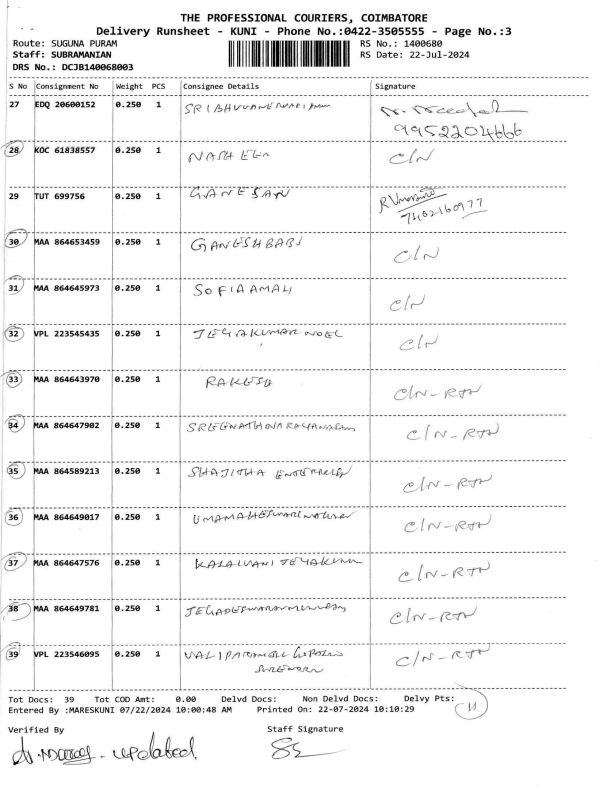 THE PROFESSIONAL COURIERS, COIMBATORE
Delivery Runsheet - KUNI - Phone No.:0422-3505555 - Page No.:3
Route: SUGUNA PURAM RS No.: 1400680
Staff: SUBRAMANIAN RS Date: 22-Jul-2024
DRS No.: DCJB140068003
S No Consignment No Weight PCS Consignee Details Signature
27 EDQ 20600152 0.250 1
9952204666
28 KOC 61838557 0.250 1 C/N
29 TUT 699756 0.250 1 GANESAN
7402160977
30 MAA 864653459 0.250 1 GANESHBABJ C/N
31 MAA 864645973 0.250 1 SOFIAAMALI C/N
32 VPL 223545435 0.250 1 JEYAKUMAR NOEL C/N
33 MAA 864643970 0.250 1 RAKESH C/N-RTN
34 MAA 864647902 0.250 1 C/N-RTN
35 MAA 864589213 0.250 1 SHAJITHA C/N-RTN
36 MAA 864649017 0.250 1 C/N-RTN
37 MAA 864647576 0.250 1 KALAIVANI C/N-RTN
38 MAA 864649781 0.250 1 C/N-RTN
39 VPL 223546095 0.250 1 C/N-RTN
Tot Docs: 39 Tot COD Amt: 0.00 Delvd Docs: Non Delvd Docs: Delvy Pts: 11
Entered By :MARESKUNI 07/22/2024 10:00:48 AM Printed On: 22-07-2024 10:10:29
Verified By Staff Signature
updated